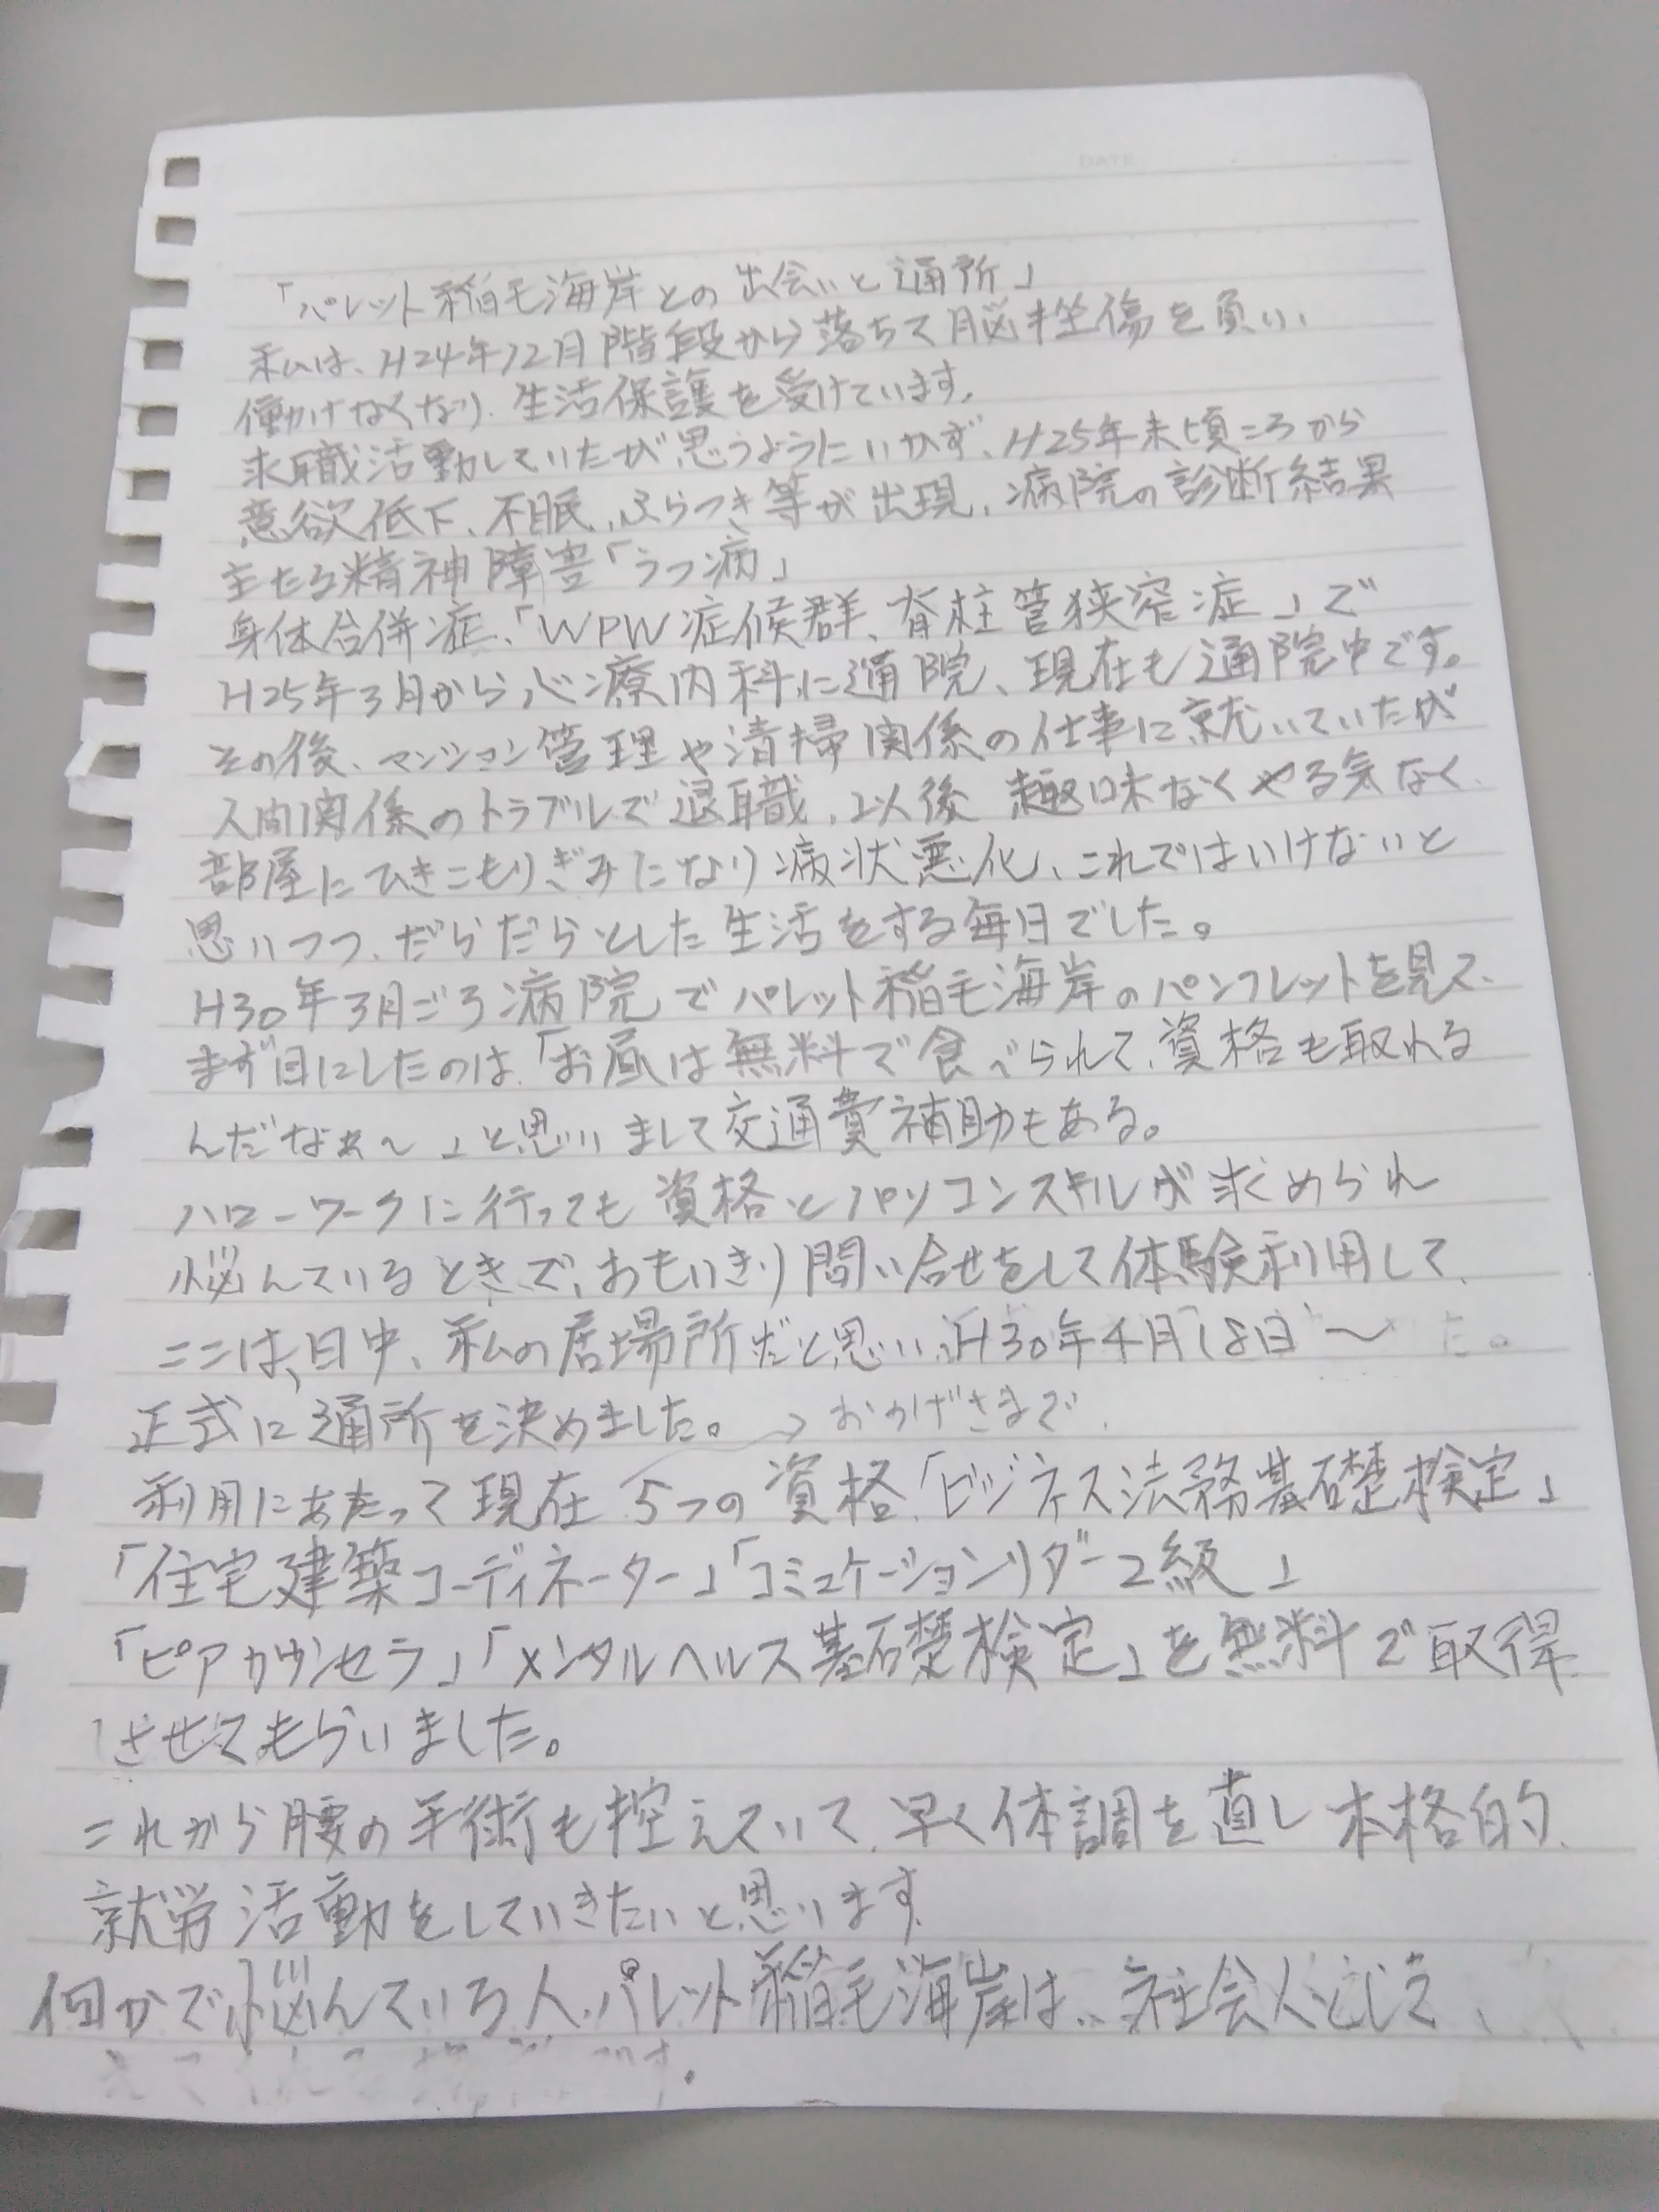 DATE
「パレット稲毛海岸との出会いと通所」
私は、H24年12月階段から落ちて脳挫傷を負い、
働けなくなり、生活保護を受けています。
求職活動していたが思うようにいかず、H25年末頃ころから
意欲低下、不眠、ふらつき等が出現、病院の診断結果
主たる精神障害「うつ病」
身体合併症、「WPW症候群、脊柱管狭窄症」で
H25年3月から心療内科に通院、現在も通院中です。
その後、マンション管理や清掃関係の仕事に就いていたが
人間関係のトラブルで退職、以後 趣味なくやる気なく、
部屋にひきこもりぎみになり病状悪化、これではいけないと
思いつつ、だらだらとした生活をする毎日でした。
H30年3月ごろ病院でパレット稲毛海岸のパンフレットを見て、
まず目にしたのは、「お昼は無料で食べられて、資格も取れる
んだなぁ〜」と思いまして交通費補助もある。
ハローワークに行っても資格とパソコンスキルが求められ
悩んでいるときで、おもいきり問い合せをして体験利用して、
ここは、日中、私の居場所だと思い、H30年4月18日〜 た。
正式に通所を決めました。→おかげさまで、
利用にあたって現在 5つの資格、「ビジネス法務基礎検定」
「住宅建築コーディネーター」「コミュケーションリダー2級」
「ピアカウンセラ」「メンタルヘルス基礎検定」を無料で取得
させてもらいました。
これから腰の手術も控えていて、早く体調を直し本格的、
就労活動をしていきたいと思います。
何かで悩んでいる人、パレット稲毛海岸は、社会人として、